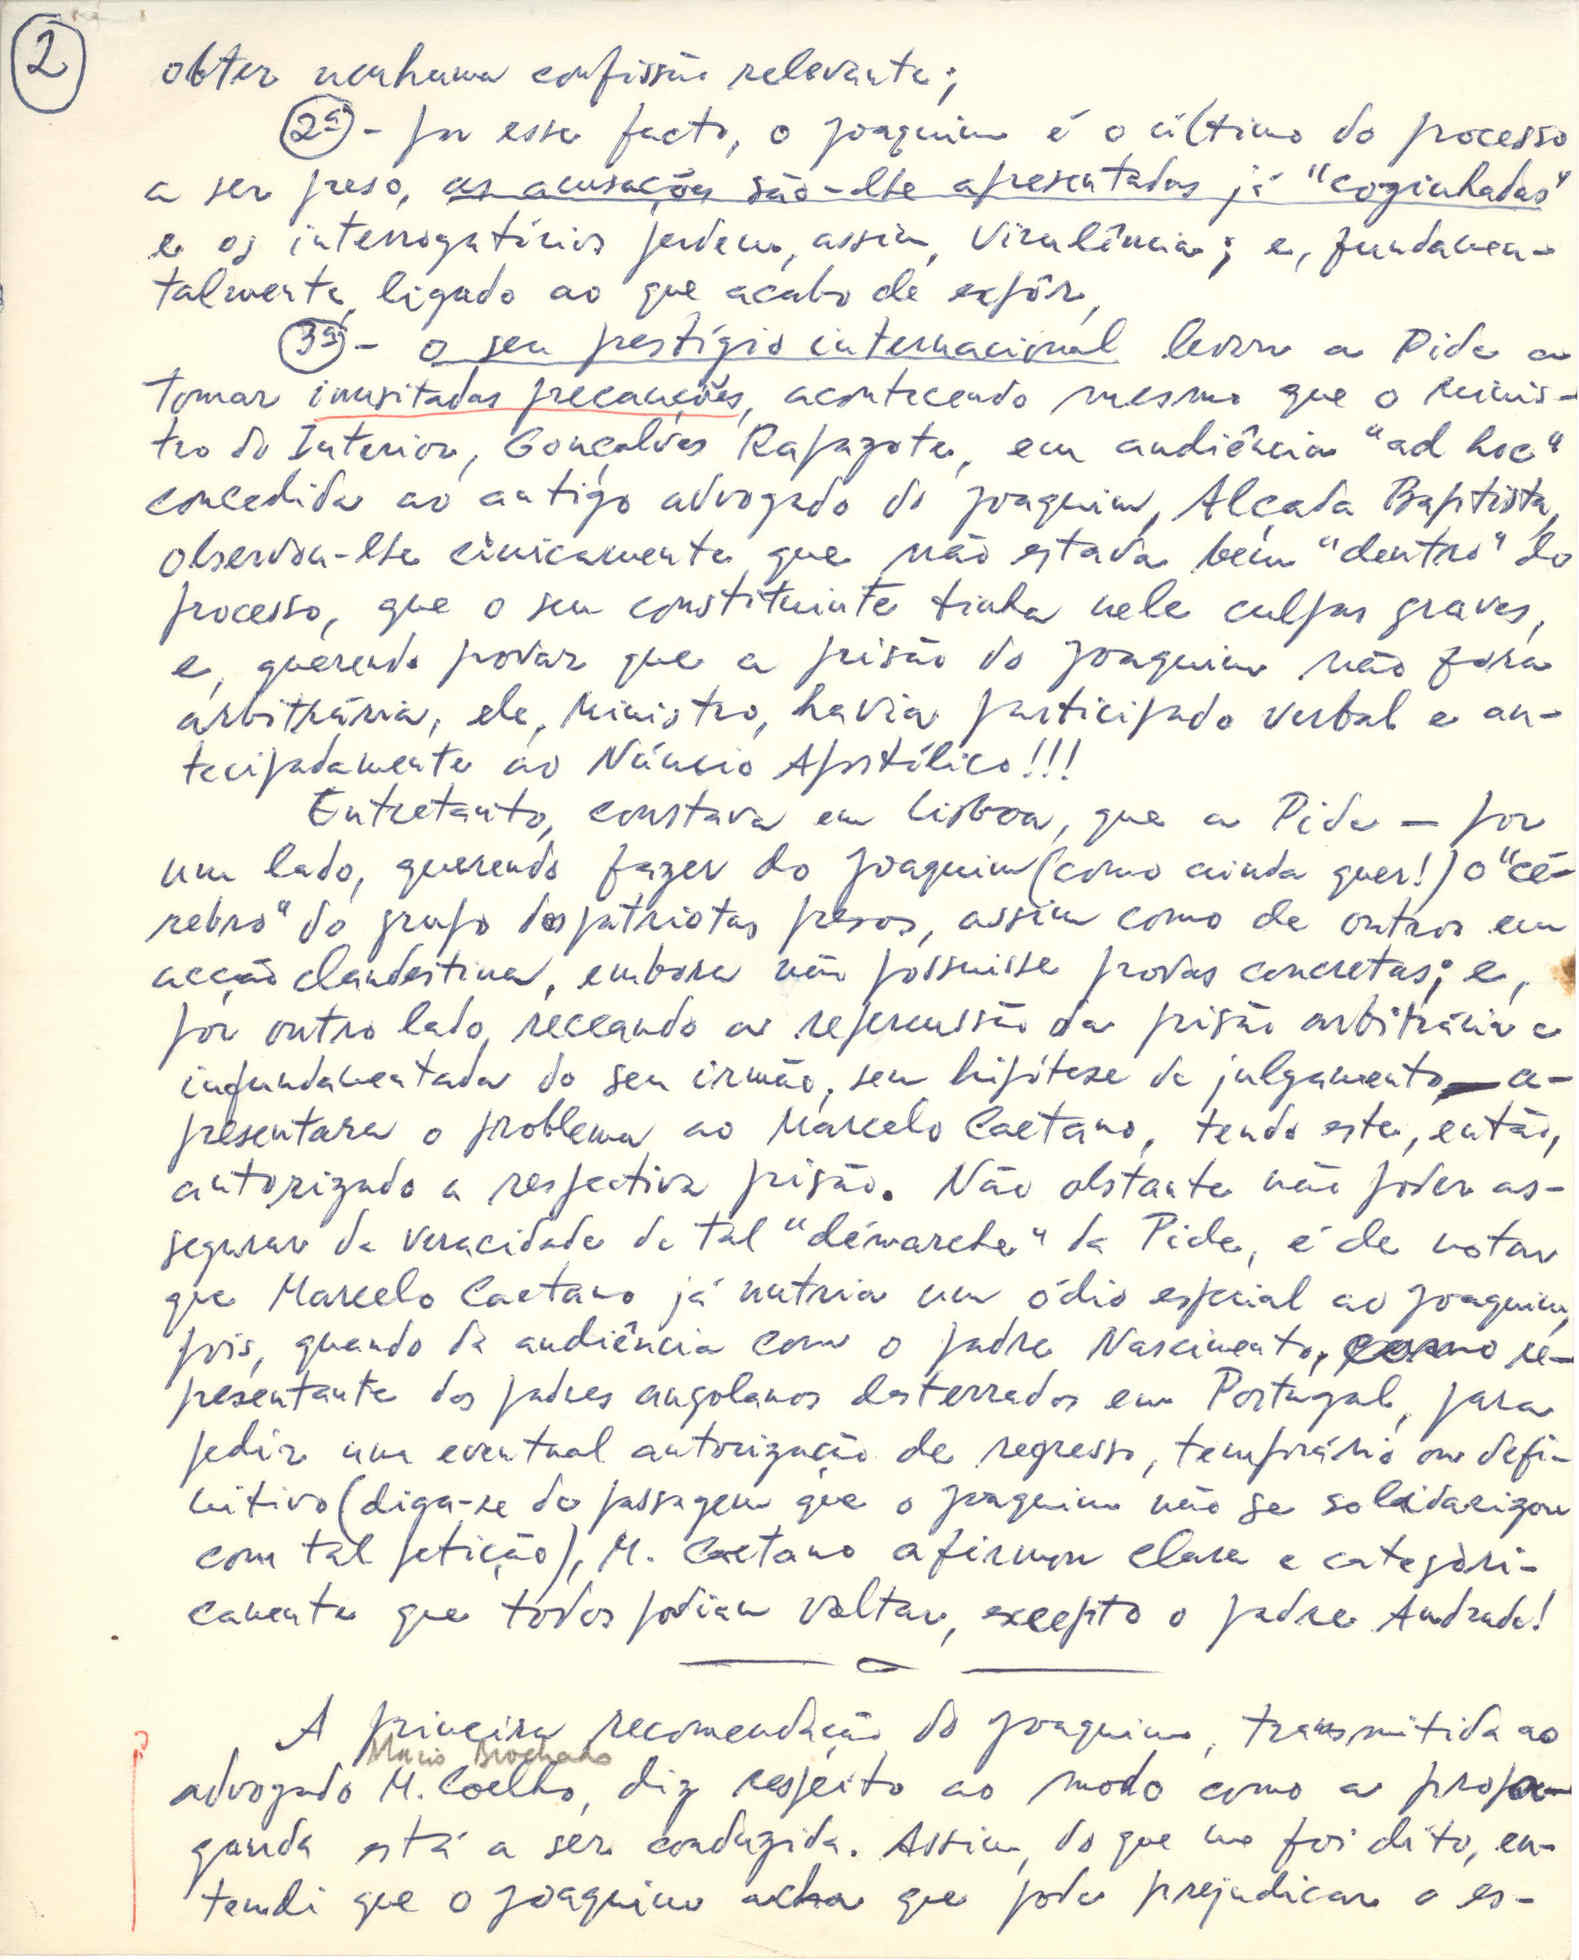 2
obter nenhuma confissão relevante;
2ª - por esse facto, o Joaquim é o último do processo
a ser preso, as acusações são-lhe apresentadas já "cozinhadas"
e os interrogatórios perdem, assim, virulência; e, fundamen-
talmente, ligado ao que acabo de expôr,
3ª - o seu prestígio internacional levou a Pide a
tomar inusitadas precauções, acontecendo mesmo que o Minis-
tro do Interior, Gonçalves Rapazote, em audiência "ad hoc"
concedida ao antigo advogado do Joaquim, Alçada Baptista,
observou-lhe cinicamente que não estava bem "dentro" do
processo, que o seu constituinte tinha nele culpas graves,
e, querendo provar que a prisão do Joaquim não fora
arbitrária, ele, Ministro, havia participado verbal e an-
tecipadamente ao Núncio Apostólico!!!
Entretanto, constava em Lisboa, que a Pide — por
um lado, querendo fazer do Joaquim (como ainda quer!) o "cé-
rebro" do grupo dos patriotas presos, assim como de outros em
acção clandestina, embora não possuisse provas concretas; e,
por outro lado, receando a repercussão da prisão arbitrária e
infundamentada do seu irmão, sem hipótese de julgamento — a-
presentara o problema ao Marcelo Caetano, tendo este, então,
autorizado a respectiva prisão. Não obstante não poder as-
segurar da veracidade de tal "démarche" da Pide, é de notar
que Marcelo Caetano já nutria um ódio especial ao Joaquim,
pois, quando da audiência com o padre Nascimento, como re-
presentante dos padres angolanos desterrados em Portugal, para
pedir uma eventual autorização de regresso, temporário ou defi-
nitivo (diga-se de passagem que o Joaquim não se solidarizou
com tal petição), M. Caetano afirmou clara e categòri-
camente que todos podiam voltar, excepto o padre Andrade!
A primeira recomendação do Joaquim, transmitida ao
Mário Brochado
advogado M. Coelho, diz respeito ao modo como a propa-
ganda está a ser conduzida. Assim, do que me foi dito, en-
tendi que o Joaquim acha que pode prejudicar o es-